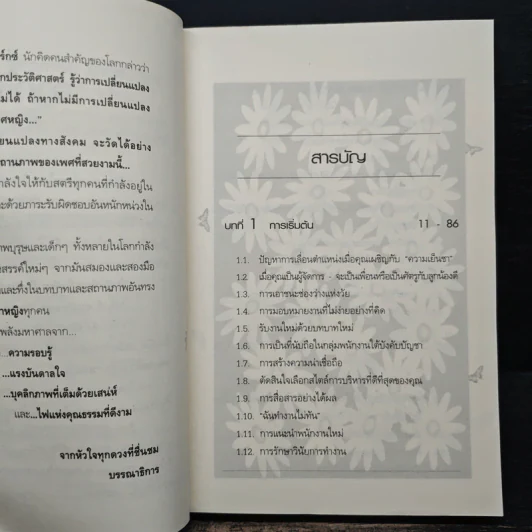 ร์กซ์ นักคิดคนสำคัญของโลกกล่าวว่า
กประวัติศาสตร์ รู้ว่าการเปลี่ยนแปลง
ม่ได้ ถ้าหากไม่มีการเปลี่ยนแปลง
ศหญิง..."
ยนแปลงทางสังคม จะวัดได้อย่าง
ถานภาพของเพศที่สวยงามนี้...
าลังใจให้กับสตรีทุกคนที่กำลังอยู่ใน
ะด้วยภาระรับผิดชอบอันหนักหน่วงใน
พบุรุษและเด็กๆ ทั้งหลายในโลกกำลัง
รรค์ใหม่ๆ จากมันสมองและสองมือ
และทึ่งในบทบาทและสถานภาพอันทรง
าหญิงทุกคน
พลังมหาศาลจาก...
...ความรอบรู้
...แรงบันดาลใจ
...บุคลิกภาพที่เต็มด้วยเสน่ห์
และ...ไฟแห่งคุณธรรมที่ดีงาม
จากหัวใจทุกดวงที่ชื่นชม
บรรณาธิการ
สารบัญ
บทที่ 1 การเริ่มต้น 11 - 86
1.1. ปัญหาการเลื่อนตำแหน่งเมื่อคุณเผชิญกับ "ความเย็นชา"
1.2. เมื่อคุณเป็นผู้จัดการ - จะเป็นเพื่อนหรือเป็นศัตรูกับลูกน้องดี
1.3. การเอาชนะช่องว่างแห่งวัย
1.4. การมอบหมายงานที่ไม่ง่ายอย่างที่คิด
1.5. รับงานใหม่ด้วยบทบาทใหม่
1.6. การเป็นที่นับถือในกลุ่มพนักงานใต้บังคับบัญชา
1.7. การสร้างความน่าเชื่อถือ
1.8. ตัดสินใจเลือกสไตล์การบริหารที่ดีที่สุดของคุณ
1.9. การสื่อสารอย่างได้ผล
1.10. "ฉันทำงานไม่ทัน"
1.11. การแนะนำพนักงานใหม่
1.12. การรักษาวินัยการทำงาน